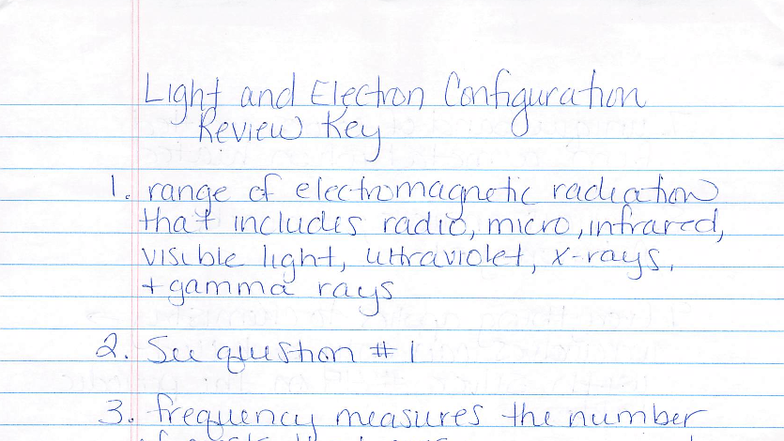 Light and Electron Configuration
Review Key
1. range of electromagnetic radiation
that includes radio, micro, infrared,
visible light, ultraviolet, x-rays,
+ gamma rays
2. See question #1
3. frequency measures the number